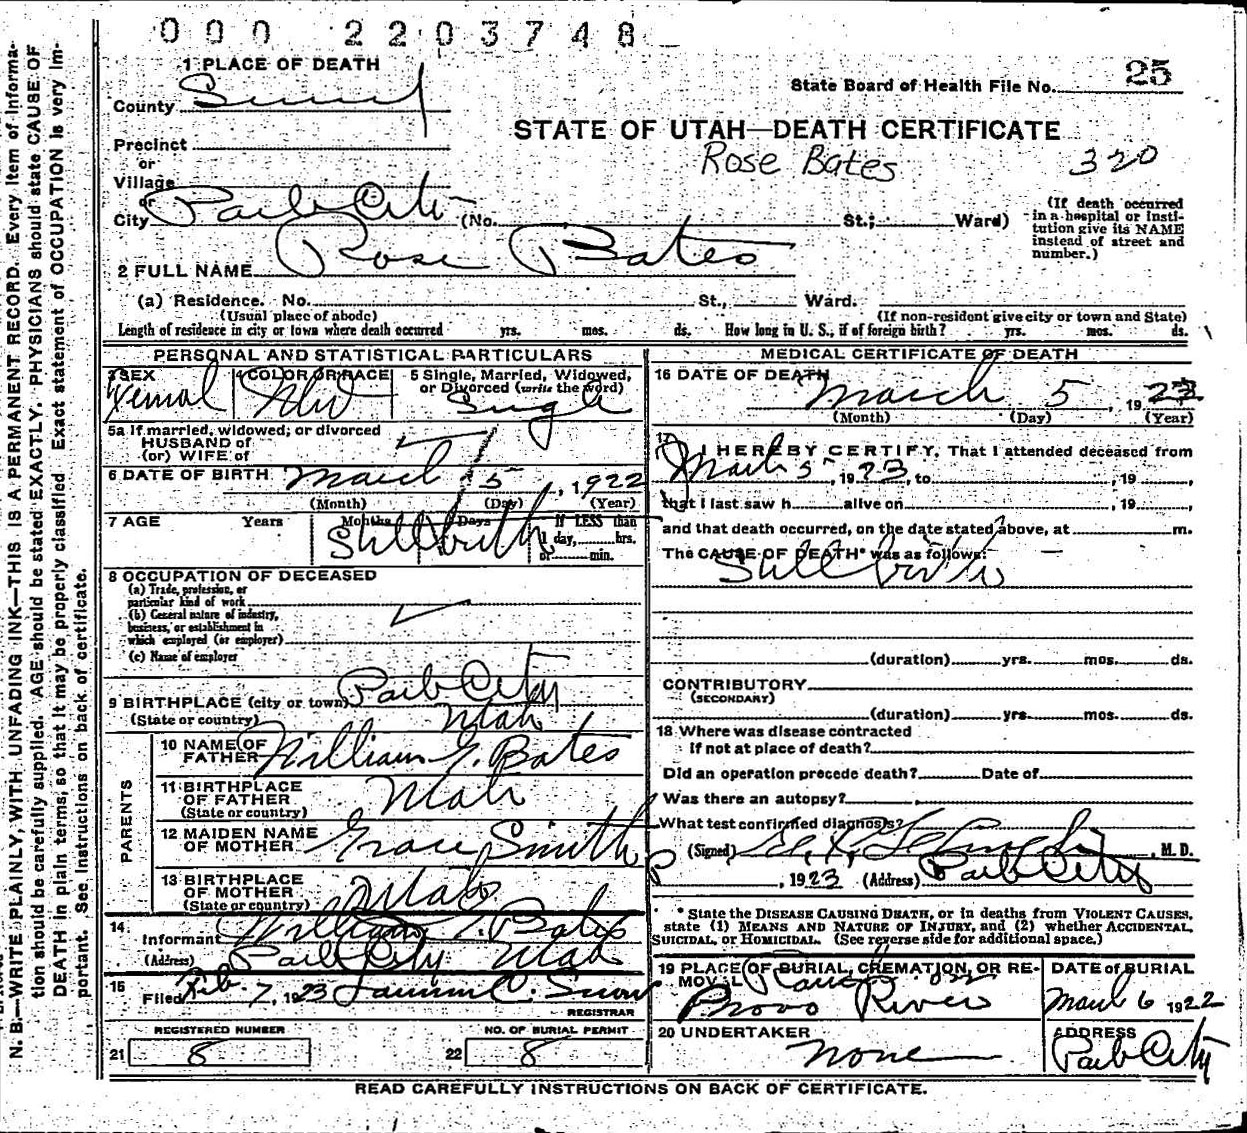 000 2203748
1 PLACE OF DEATH
State Board of Health File No. 25
County Summit
STATE OF UTAH—DEATH CERTIFICATE
Precinct
Rose Bates 320
or
Village
or
City Park City (No. St.; Ward)
(If death occurred in a hospital or institution give its NAME instead of street and number.)
2 FULL NAME Rose Bates
(a) Residence. No. St., Ward.
(Usual place of abode) (If non-resident give city or town and State)
Length of residence in city or town where death occurred yrs. mos. ds. How long in U. S., if of foreign birth? yrs. mos. ds.
PERSONAL AND STATISTICAL PARTICULARS
3 SEX Femal
4 COLOR OR RACE Whit
5 Single, Married, Widowed, or Divorced (write the word) Single
5a If married, widowed; or divorced
HUSBAND of
(or) WIFE of
6 DATE OF BIRTH March 5, 1922
(Month) (Day) (Year)
7 AGE Years Months Days If LESS than
1 day, hrs.
or min.
Stillbirth
8 OCCUPATION OF DECEASED
(a) Trade, profession, or
particular kind of work
(b) General nature of industry,
business, or establishment in
which employed (or employer)
(c) Name of employer
9 BIRTHPLACE (city or town) Park City
(State or country) Utah
PARENTS
10 NAME OF FATHER William G. Bates
11 BIRTHPLACE OF FATHER Utah
(State or country)
12 MAIDEN NAME OF MOTHER Grace Smith
13 BIRTHPLACE OF MOTHER Utah
(State or country)
14 Informant William G. Bates
(Address) Park City Utah
15 Filed Feb. 7, 1923
REGISTRAR
REGISTERED NUMBER NO. OF BURIAL PERMIT
21 8 22 8
MEDICAL CERTIFICATE OF DEATH
16 DATE OF DEATH
March 5, 1923
(Month) (Day) (Year)
17 I HEREBY CERTIFY, That I attended deceased from
March 5, 1923, to , 19
that I last saw h alive on , 19
and that death occurred, on the date stated above, at m.
The CAUSE OF DEATH* was as follows:
Stillbirth
(duration) yrs. mos. ds.
CONTRIBUTORY
(SECONDARY)
(duration) yrs. mos. ds.
18 Where was disease contracted
if not at place of death?
Did an operation precede death? Date of
Was there an autopsy?
What test confirmed diagnosis?
(Signed) , M. D.
, 1923 (Address) Park City
* State the DISEASE CAUSING DEATH, or in deaths from VIOLENT CAUSES,
state (1) MEANS AND NATURE OF INJURY, and (2) whether ACCIDENTAL,
SUICIDAL, or HOMICIDAL. (See reverse side for additional space.)
19 PLACE OF BURIAL, CREMATION, OR REMOVAL
Provo River
DATE of BURIAL
March 6 1922
20 UNDERTAKER
none
ADDRESS
Park City
READ CAREFULLY INSTRUCTIONS ON BACK OF CERTIFICATE.
N. B.—WRITE PLAINLY, WITH UNFADING INK—THIS IS A PERMANENT RECORD. Every item of informa-
tion should be carefully supplied. AGE should be stated EXACTLY. PHYSICIANS should state CAUSE OF
DEATH in plain terms, so that it may be properly classified. Exact statement of OCCUPATION is very im-
portant. See instructions on back of certificate.